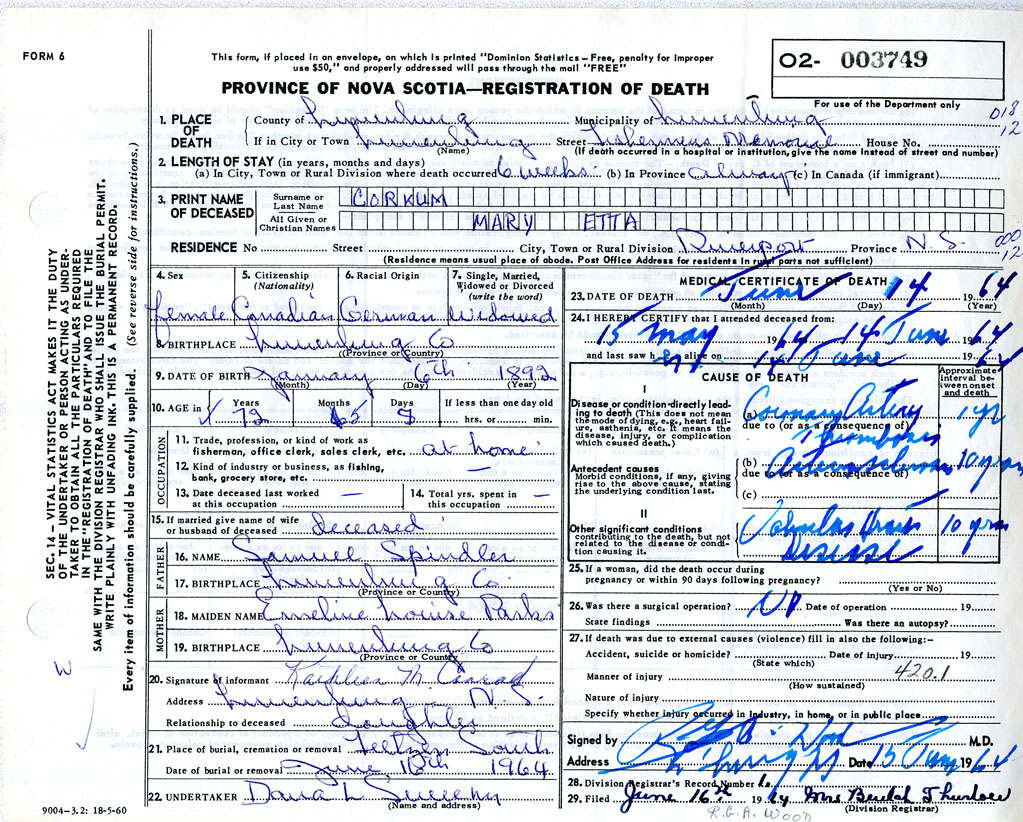 FORM 6
This form, if placed in an envelope, on which is printed "Dominion Statistics – Free, penalty for improper
use $50," and properly addressed will pass through the mail "FREE"
PROVINCE OF NOVA SCOTIA—REGISTRATION OF DEATH
O2- 003749
For use of the Department only
018
12
1. PLACE OF DEATH
County of Lunenburg Municipality of Lunenburg
If in City or Town Lunenburg Street Fishermens Memorial House No.
(Name) (If death occurred in hospital or institution, give the name instead of street and number)
2. LENGTH OF STAY (in years, months and days)
(a) In City, Town or Rural Division where death occurred 6 weeks (b) In Province always (c) In Canada (if immigrant)
3. PRINT NAME OF DECEASED
Surname or Last Name CORKUM
All Given or Christian Names MARY ETTA
RESIDENCE No Street City, Town or Rural Division Province N.S.
000
12
(Residence means usual place of abode. Post Office Address for residents in rural parts not sufficient)
SEC. 14 – VITAL STATISTICS ACT MAKES IT THE DUTY
OF THE UNDERTAKER OR PERSON ACTING AS UNDER-
TAKER TO OBTAIN ALL THE PARTICULARS REQUIRED
IN THE "REGISTRATION OF DEATH" AND TO FILE THE
SAME WITH THE DIVISION REGISTRAR WHO SHALL ISSUE THE BURIAL PERMIT.
WRITE PLAINLY WITH UNFADING INK. THIS IS A PERMANENT RECORD.
Every item of information should be carefully supplied. (See reverse side for instructions.)
W
4. Sex
Female
5. Citizenship (Nationality)
Canadian
6. Racial Origin
German
7. Single, Married, Widowed or Divorced (write the word)
Widowed
8. BIRTHPLACE Lunenburg Co
(Province or Country)
9. DATE OF BIRTH January 6th 1892
(Month) (Day) (Year)
10. AGE in Years Months Days If less than one day old
72 5 hrs. or min.
OCCUPATION
11. Trade, profession, or kind of work as
fisherman, office clerk, sales clerk, etc. at home
12. Kind of industry or business, as fishing,
bank, grocery store, etc. —
13. Date deceased last worked at this occupation —
14. Total yrs. spent in this occupation —
15. If married give name of wife
or husband of deceased deceased
FATHER
16. NAME Samuel Spindler
17. BIRTHPLACE Lunenburg Co.
(Province or Country)
MOTHER
18. MAIDEN NAME Emeline Louise Parks
19. BIRTHPLACE Lunenburg Co
(Province or Country)
20. Signature of informant Kathleen M. Conrad
Address Lunenburg N.S.
Relationship to deceased daughter
21. Place of burial, cremation or removal Feltzen South
Date of burial or removal June 16th 1964
22. UNDERTAKER Sweeny
(Name and address)
9004–3.2: 18-5-60
MEDICAL CERTIFICATE OF DEATH
23. DATE OF DEATH June 14 1964
(Month) (Day) (Year)
24. I HEREBY CERTIFY that I attended deceased from:
15 May 1964 14 June 1964
and last saw her alive on 14 June 1964
CAUSE OF DEATH
Approximate interval between onset and death
I
Disease or condition directly lead-
ing to death (This does not mean
the mode of dying, e.g., heart fail-
ure, asthenia, etc. It means the
disease, injury, or complication
which caused death.)
(a) Coronary Artery 1 yr
due to (or as a consequence of)
Thrombosis
Antecedent causes
Morbid conditions, if any, giving
rise to the above cause, stating
the underlying condition last.
(b) Arteriosclerosis 10 years
due to (or as a consequence of)
(c)
II
Other significant conditions
contributing to the death, but not
related to the disease or condi-
tion causing it.
Valvular Heart 10 yrs
Disease
25. If a woman, did the death occur during
pregnancy or within 90 days following pregnancy?
(Yes or No)
26. Was there a surgical operation? No Date of operation 19
State findings Was there an autopsy?
27. If death was due to external causes (violence) fill in also the following:–
Accident, suicide or homicide? Date of injury 19
(State which)
Manner of injury 420.1
(How sustained)
Nature of injury
Specify whether injury occurred in industry, in home, or in public place
Signed by M.D.
Address Date 15 June 1964
28. Division Registrar's Record Number
29. Filed June 16th 1964 Mrs Beulah
(Division Registrar)
R.G.A. WOOD